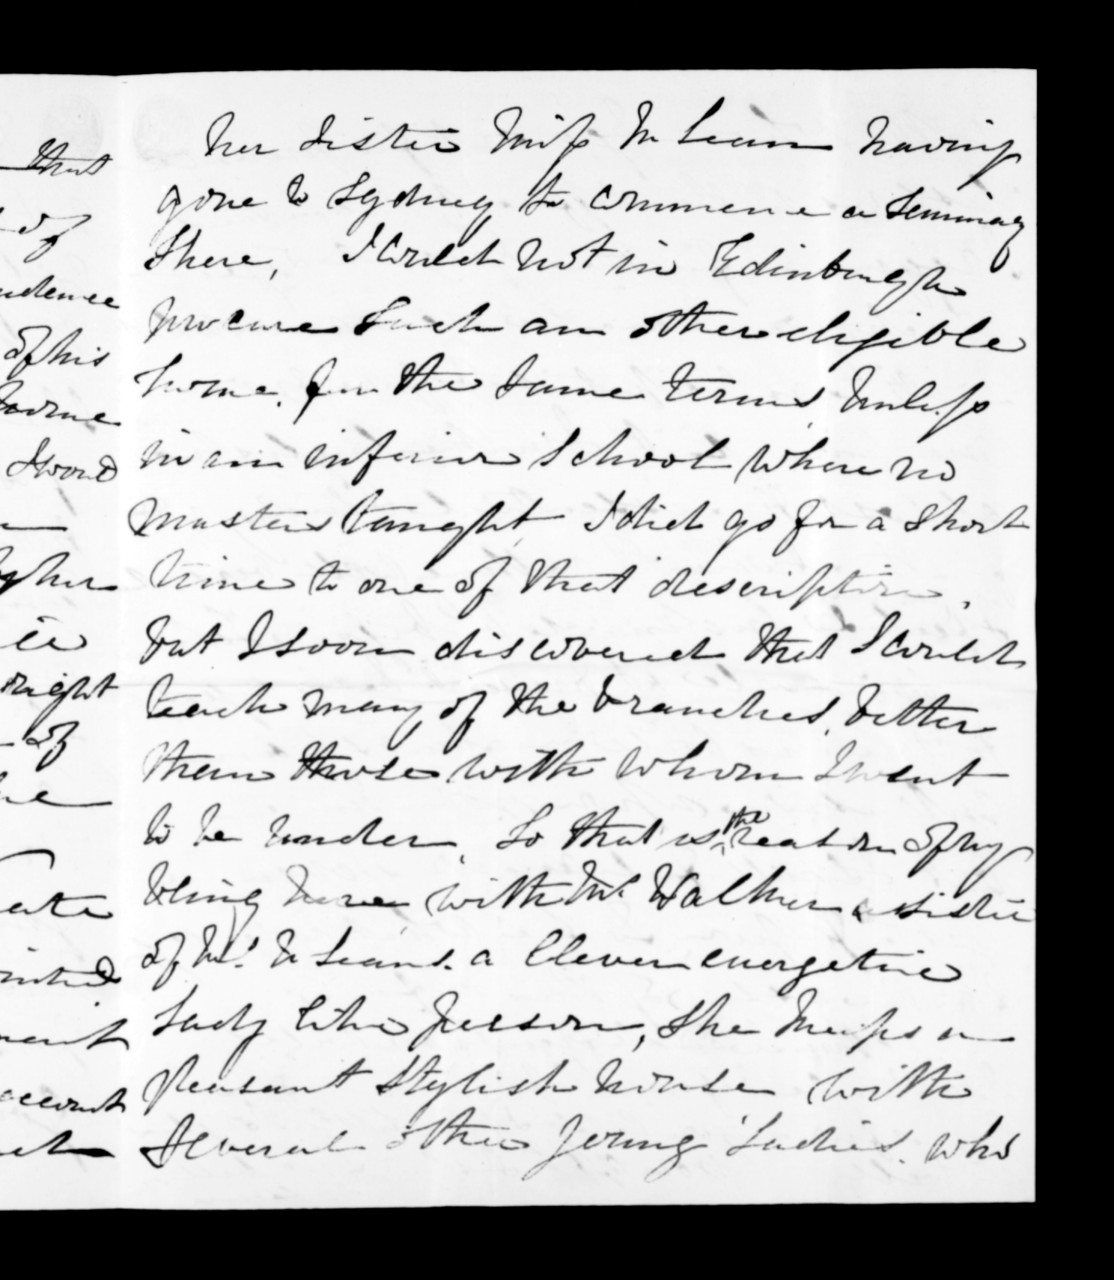 that
of
of his
I wond
right
of
account
her sister Miss McLean having
gone to Sydney to commence a Seminary
there, I could not in Edinburgh
procure such an other eligible
home. for the same terms, Unless
in an inferior School where no
masters taught, I did go for a short
time to one of that description,
but I soon discovered that I could
teach many of the branches, better
than those with whom I went
to be under, So that is the reason of my
being here with Mrs Walker a sister
of Mrs McLeans. a Clever energetic
Lady like person, She keeps a
pleasant Stylish house with
Several other young Ladies. who